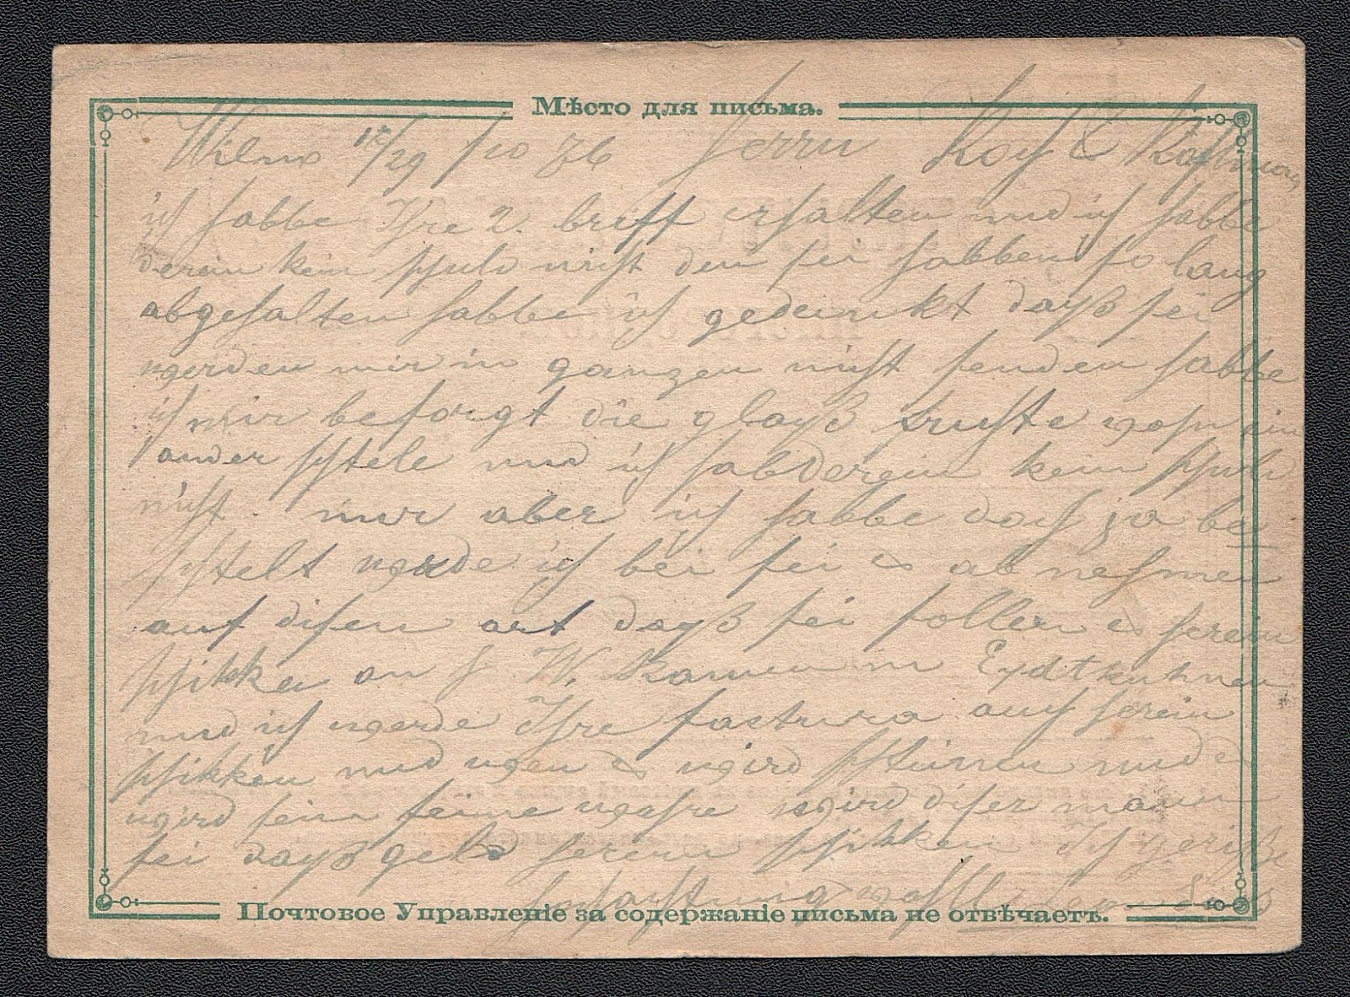 Мѣсто для письма.
Wilno 17/29 /10 76 Herrn Koch &
ich habbe Ihre 2. briff erhalten und ich habbe
derein kein schuld nicht den sei habben so lang
abgehalten habbe ich gedeinkt dayß sei
werden mir in ganzen nicht senden habbe
ich mir besorgt die glayß
ander schtele und ich hab derein kein schuld
nicht nur aber ich habbe doch ja be
schtelt werde ich bei sei es ab nehmen
auf disen art dayß sei sollen es herein
schikken an H W. Kamen in Eydtkuhnen
und ich werde Ihre factura auch herein
schikken und wen es wird schtimen und es
wird sein feine wahre wird diser mann
sei dayß geld herein schikken Ich
Почтовое Управленіе за содержаніе письма не отвѣчаетъ.